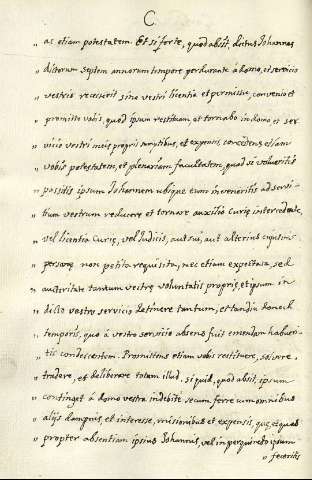 C.
„ ac etiam potestatem. Et si forte, quod absit, dictus Johannes
„ dictorum septem annorum tempore perdurante à domo, et servicio
„ vestris recesserit sine vestri licentia et permissu, convenio et
„ promitto vobis, quod ipsum restituam, et tornabo in domo et ser
„ vicio vestri meis propris sumptibus, et expensis, concedens etiam
„ vobis potestatem, et plenariam facultatem, quod si volueritis
„ possitis ipsum Johannem ubique eum inveneritis ad servi-
„ tium vestrum reducere et tornare auxilio Curię intercedente,
„ vel licentia Curię, vel Judicis, aut sui, aut alterius cujusvis
„ personę non petita requisita, nec etiam expectata, sed
„ auctoritate tantum vestrę voluntatis proprię, et ipsum in
„ dicto vestro servicio detinere tantum, et tandiu donech
„ temporis, quo à vestro servicio absens fuit emendam habueri-
„ tis condescentem. Promittens etiam vobis restituere, solvere,
„ tradere, et deliberare totam illud, si quid, quod absit, ipsum
„ contingat à domo vestra indebite secum ferre cum omnibus
„ alijs dampnis, et interesse, misionibus et expensis, que, et quas
„ propter absentiam ipsius Johannis, vel in perquirendo ipsum
„ feceritis